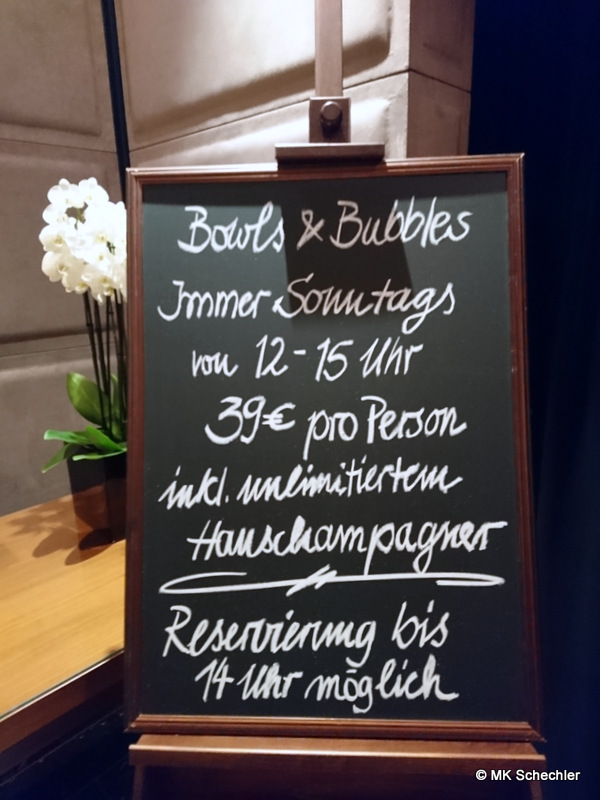 Bowls & Bubbles
Immer Sonntags
von 12-15 Uhr
39€ pro Person
inkl. unlimitiertem
Hauschampagner
Reservierung bis
14 Uhr möglich
© MK Schechler